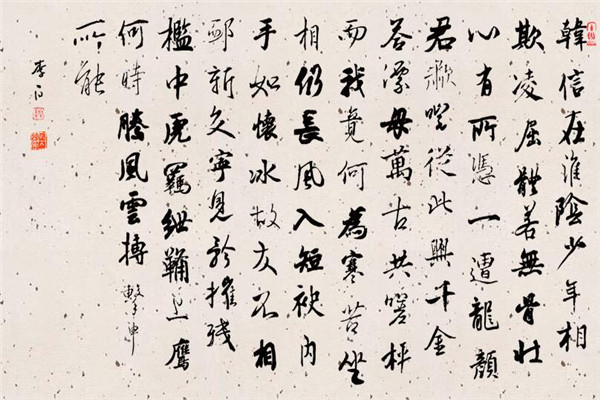 韓信在淮陰少年相
欺凌屈體若無骨壯
心有所憑一遭龍顏
君嘯咤從此興千金
答漂母萬古共嗟稱
而我竟何為寒苦坐
相仍長風入短袂內
手如懷冰故友不相
卹新交寧見矜摧殘
檻中虎羈紲韝上鷹
何時騰風雲搏擊申
所能
李白